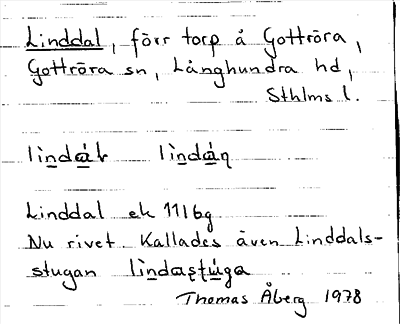 Linddal, förr torp å Gottröra,
Gottröra sn, Långhundra hd,
Sthlms l.
lìndál lìndán
Linddal ek 11I6g
Nu rivet. Kallades även Linddals-
stugan lìndaʂtúga
Thomas Åberg 1978